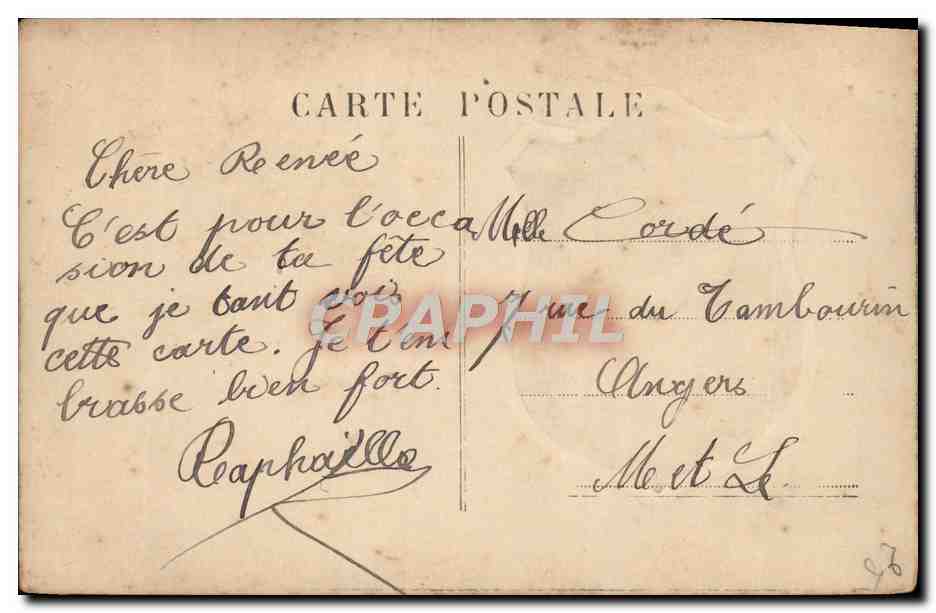 CARTE POSTALE
Chère Renée
C'est pour l'occa
sion de ta fête
que je tant vois
cette carte. Je t'em
brasse bien fort.
Raphaëlle
Melle Cordé
7 rue du Tambourin
Angers
M et L
CPAPHIL